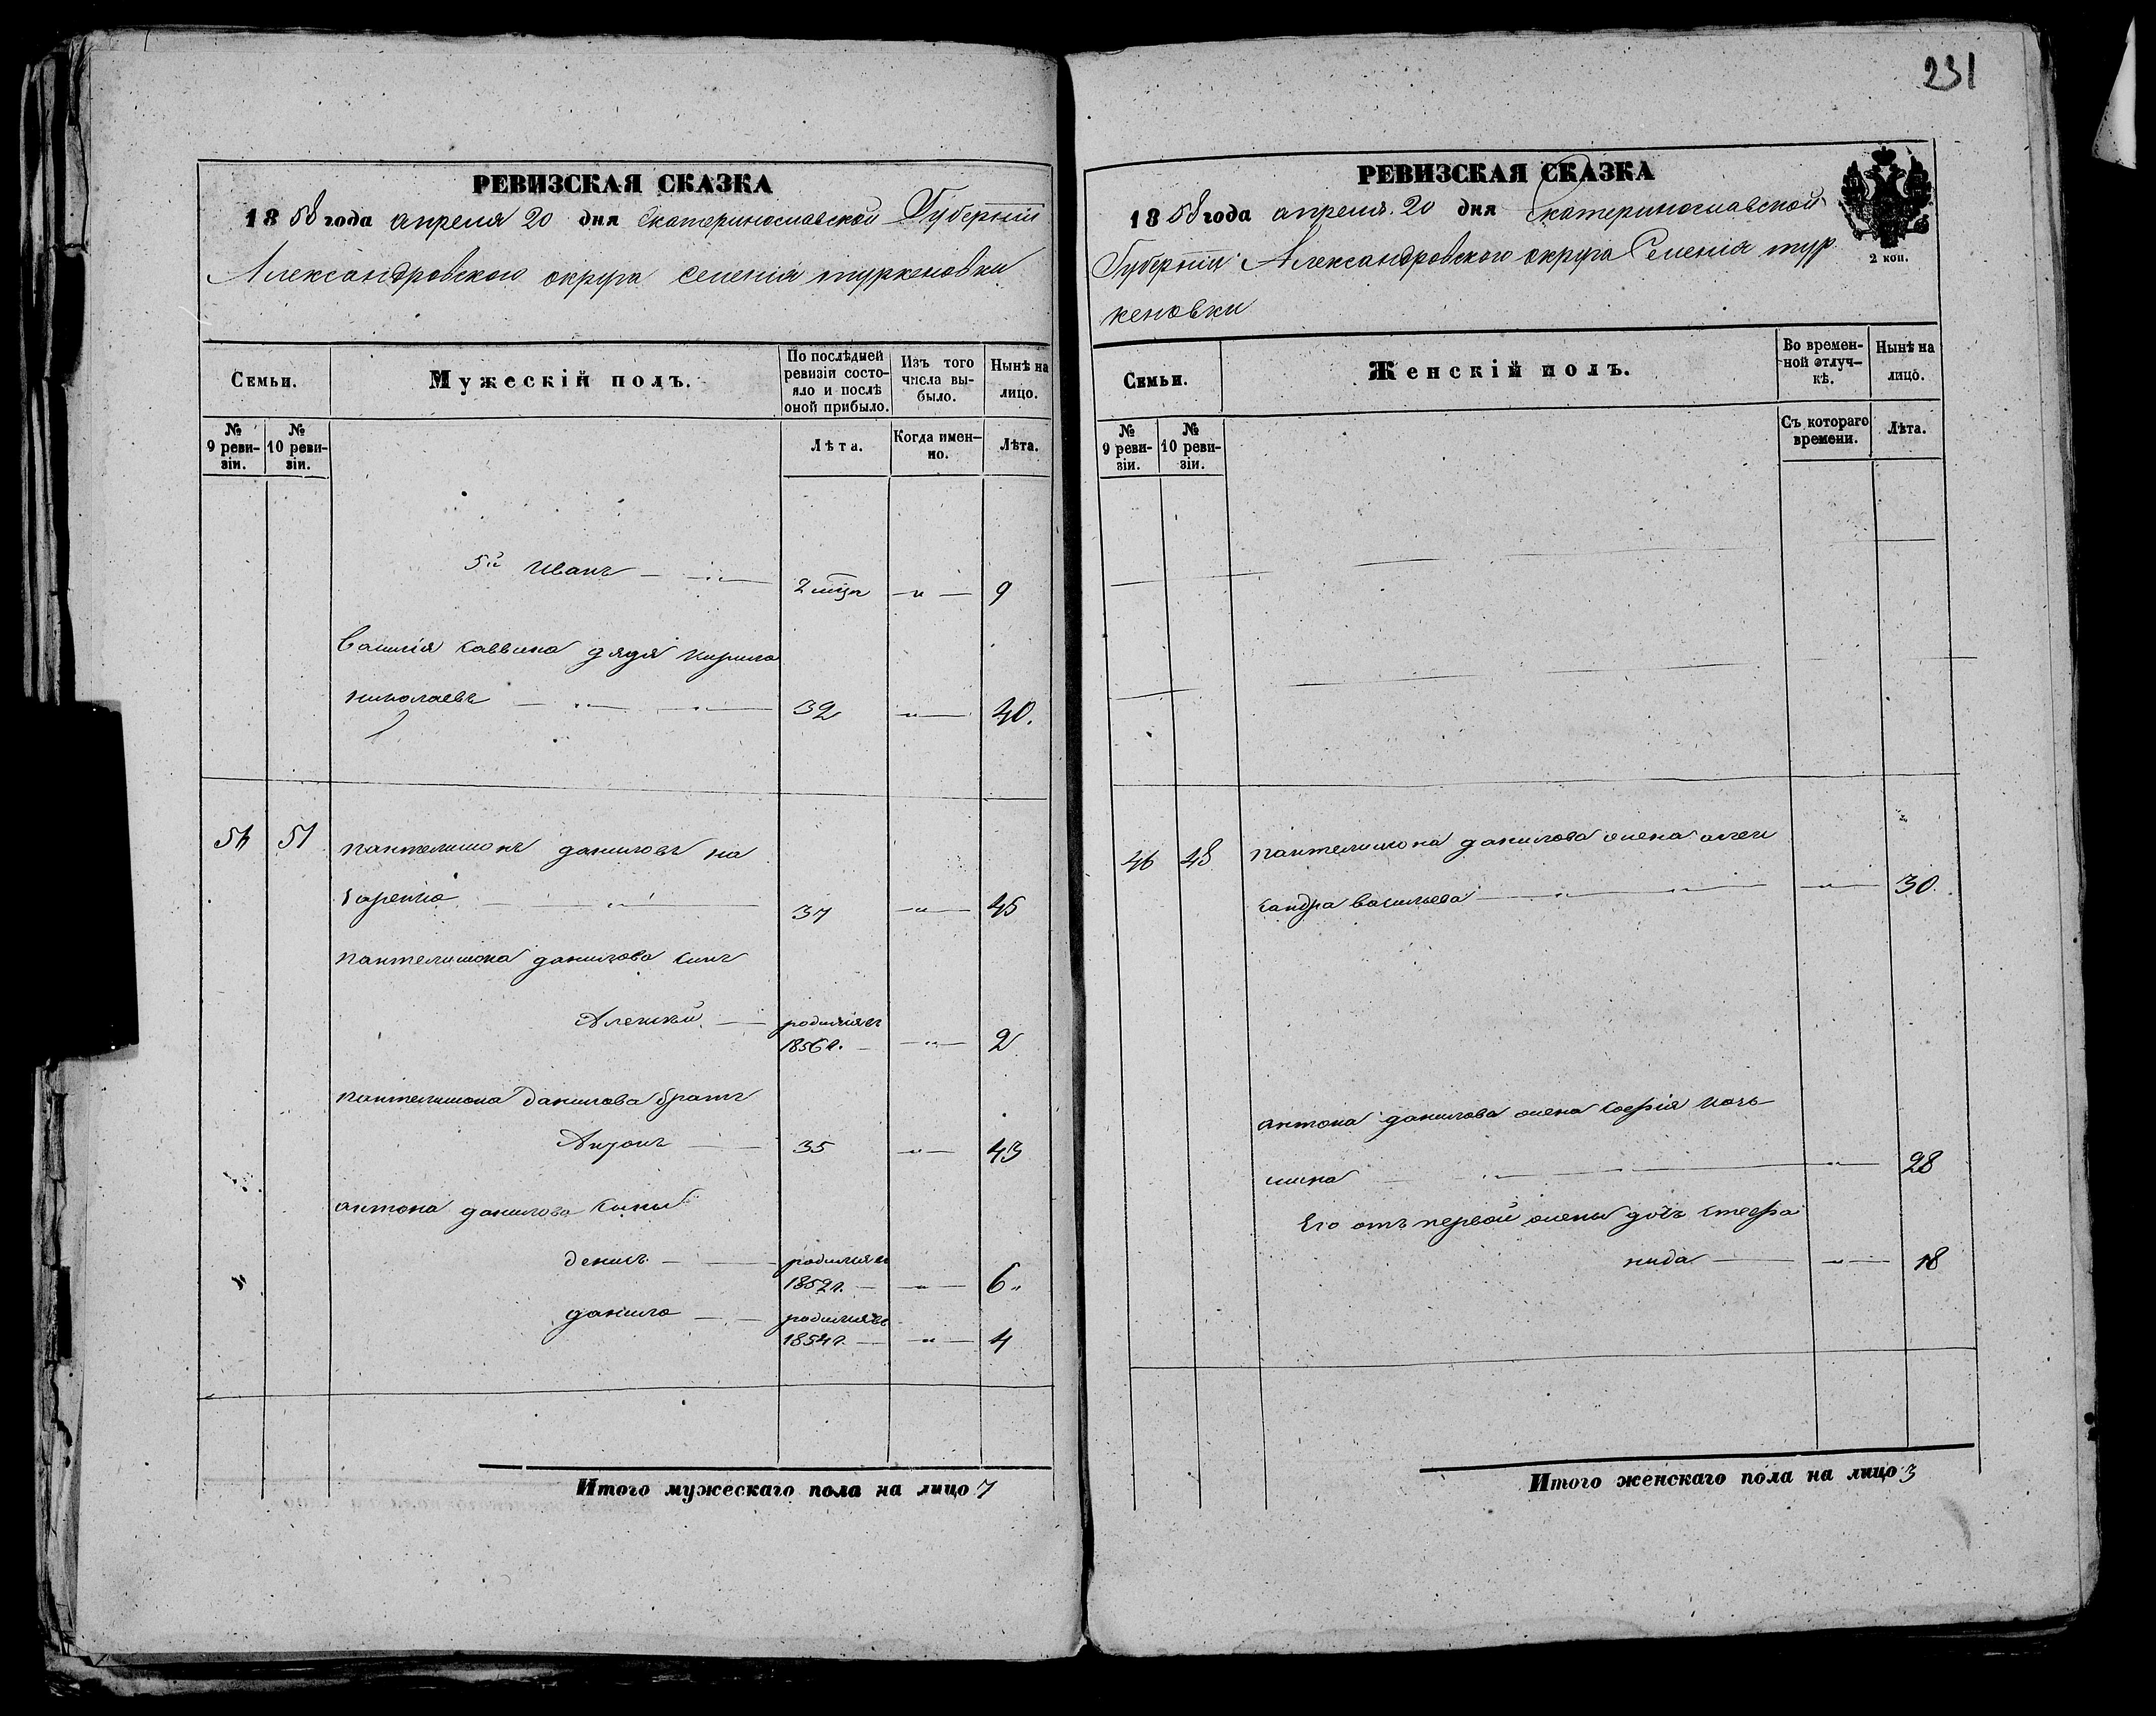 РЕВИЗСКАЯ СКАЗКА
1858 года апреля 20 дня Екатеринославской Губерніи
Александровского округа селенія туркеновки
Семьи.
Мужескій полъ.
По послѣдней ревизіи состояло и послѣ оной прибыло.
Изъ того числа выбыло.
Нынѣ на лицо.
№ 9 ревизіи.
№ 10 ревизіи.
Лѣта.
Когда именно.
Лѣта.
5й Иванъ — „ — 2 мѣца — „ — 9
Василія Саввина дядя Кирило
николаевъ — „ — „ — 32 — „ — 40.
51 пантелимонъ даниловъ на
заренко — „ — 37 — „ — 45
пантелимона данилова сынъ
Алексѣй — родился въ
1856 г. — „ — 2
пантелимона данилова братъ
Антонъ — 35 — „ — 43
антона данилова сыны
денисъ — родился въ
1852 г. — „ — 6
данило — родился въ
1854 г. — „ — 4
Итого мужескаго пола на лицо 7
231
РЕВИЗСКАЯ СКАЗКА
1858 года апреля 20 дня Екатеринославской
Губерніи Александровского округа Селенія тур
кеновки
2 коп.
Семьи.
Женскій полъ.
Во временной отлучкѣ.
Нынѣ на лицо.
№ 9 ревизіи.
№ 10 ревизіи.
Съ котораго времени.
Лѣта.
46 48 пантелимона данилова жена алек
сандра васильева — „ — „ — 30.
антона данилова жена Софія
— „ — „ — 28
Его отъ первой жены дочь стефа
нида — „ — 18
Итого женскаго пола на лицо 3